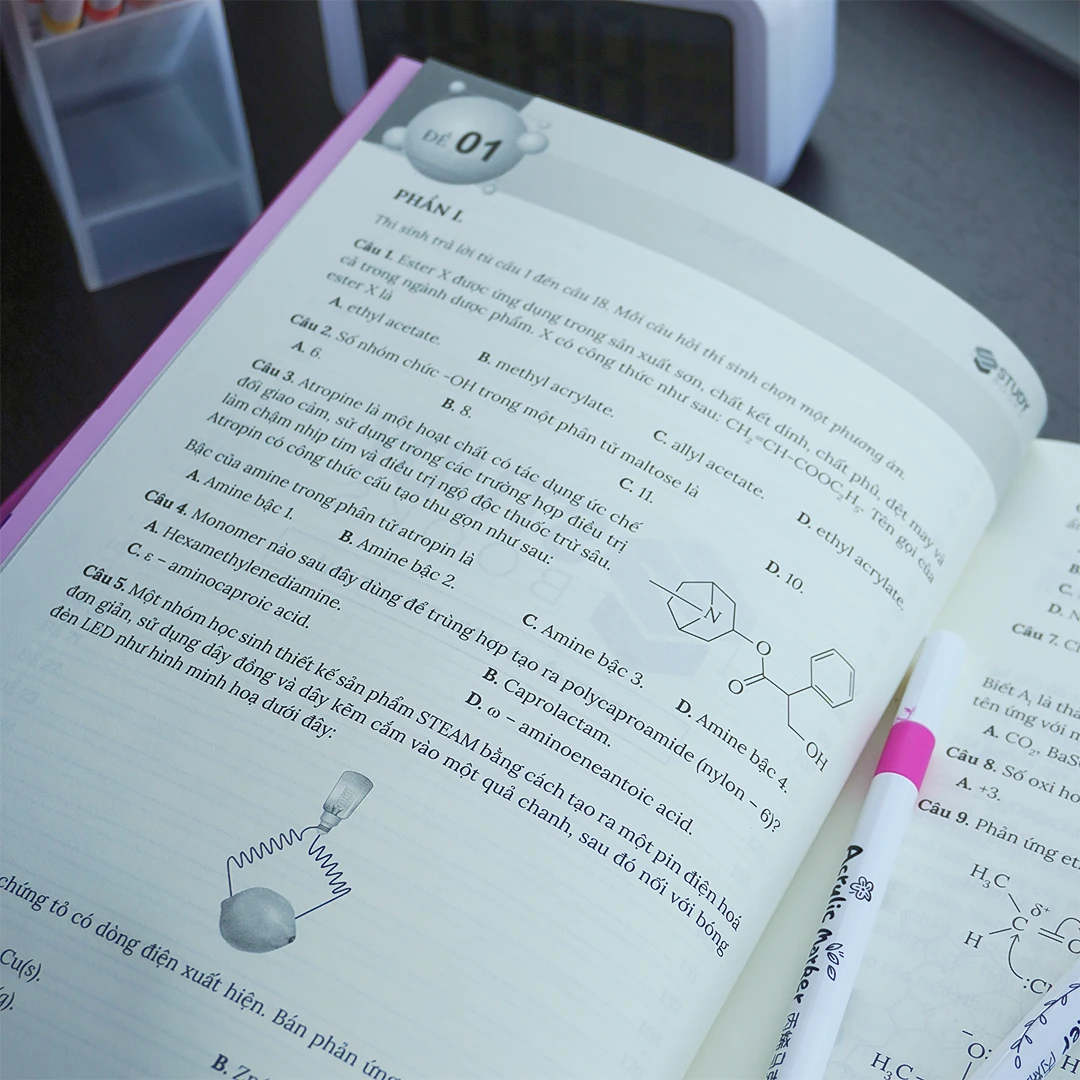 ĐỀ 01
STUDY
PHẦN I.
Thí sinh trả lời từ câu 1 đến câu 18. Mỗi câu hỏi thí sinh chọn một phương án.
Câu 1. Ester X được ứng dụng trong sản xuất sơn, chất kết dính, chất phủ, dệt may và
cả trong ngành dược phẩm. X có công thức như sau: CH₂=CH-COOC₂H₅. Tên gọi của
ester X là
A. ethyl acetate. B. methyl acrylate. C. allyl acetate. D. ethyl acrylate.
Câu 2. Số nhóm chức –OH trong một phân tử maltose là
A. 6. B. 8. C. 11. D. 10.
Câu 3. Atropine là một hoạt chất có tác dụng ức chế
đối giao cảm, sử dụng trong các trường hợp điều trị
làm chậm nhịp tim và điều trị ngộ độc thuốc trừ sâu.
Atropin có công thức cấu tạo thu gọn như sau:
N
O
O
OH
Bậc của amine trong phân tử atropin là
A. Amine bậc 1. B. Amine bậc 2. C. Amine bậc 3. D. Amine bậc 4.
Câu 4. Monomer nào sau đây dùng để trùng hợp tạo ra polycaproamide (nylon – 6)?
A. Hexamethylenediamine. B. Caprolactam.
C. ε – aminocaproic acid. D. ω – aminoeneantoic acid.
Câu 5. Một nhóm học sinh thiết kế sản phẩm STEAM bằng cách tạo ra một pin điện hoá
đơn giản, sử dụng dây đồng và dây kẽm cắm vào một quả chanh, sau đó nối với bóng
đèn LED như hình minh hoạ dưới đây:
chứng tỏ có dòng điện xuất hiện. Bán phản ứng
Cu(s).
(g).
B.
B
C.
D. N
Câu 7.
Biết A₁ là
tên ứng với
A. CO₂,
Câu 8. Số oxi
A. +3.
Câu 9. Phản ứng
H₃C
δ⁺
C
H
H₃C
O:
Acrylic Marber